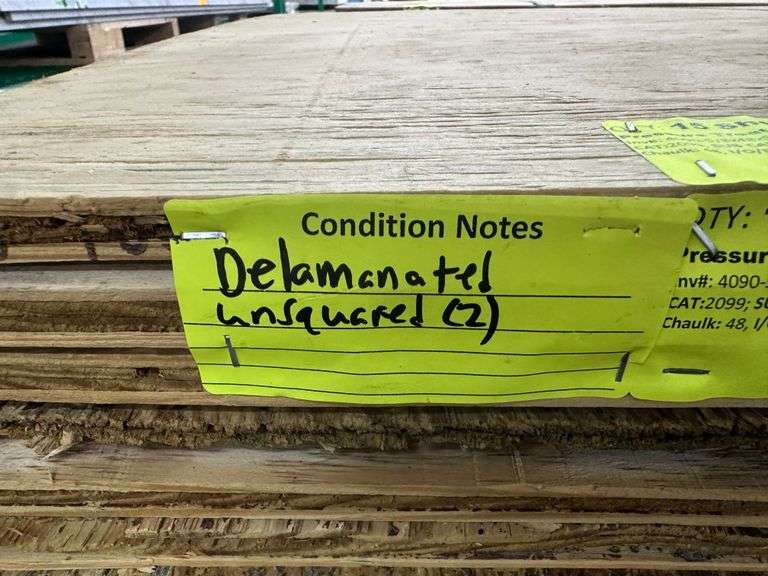 Condition Notes
Delamanated
unsquared (2)
QTY:
Pressur
nv#: 4090-
CAT:2099; SU
Chaulk: 48, I/